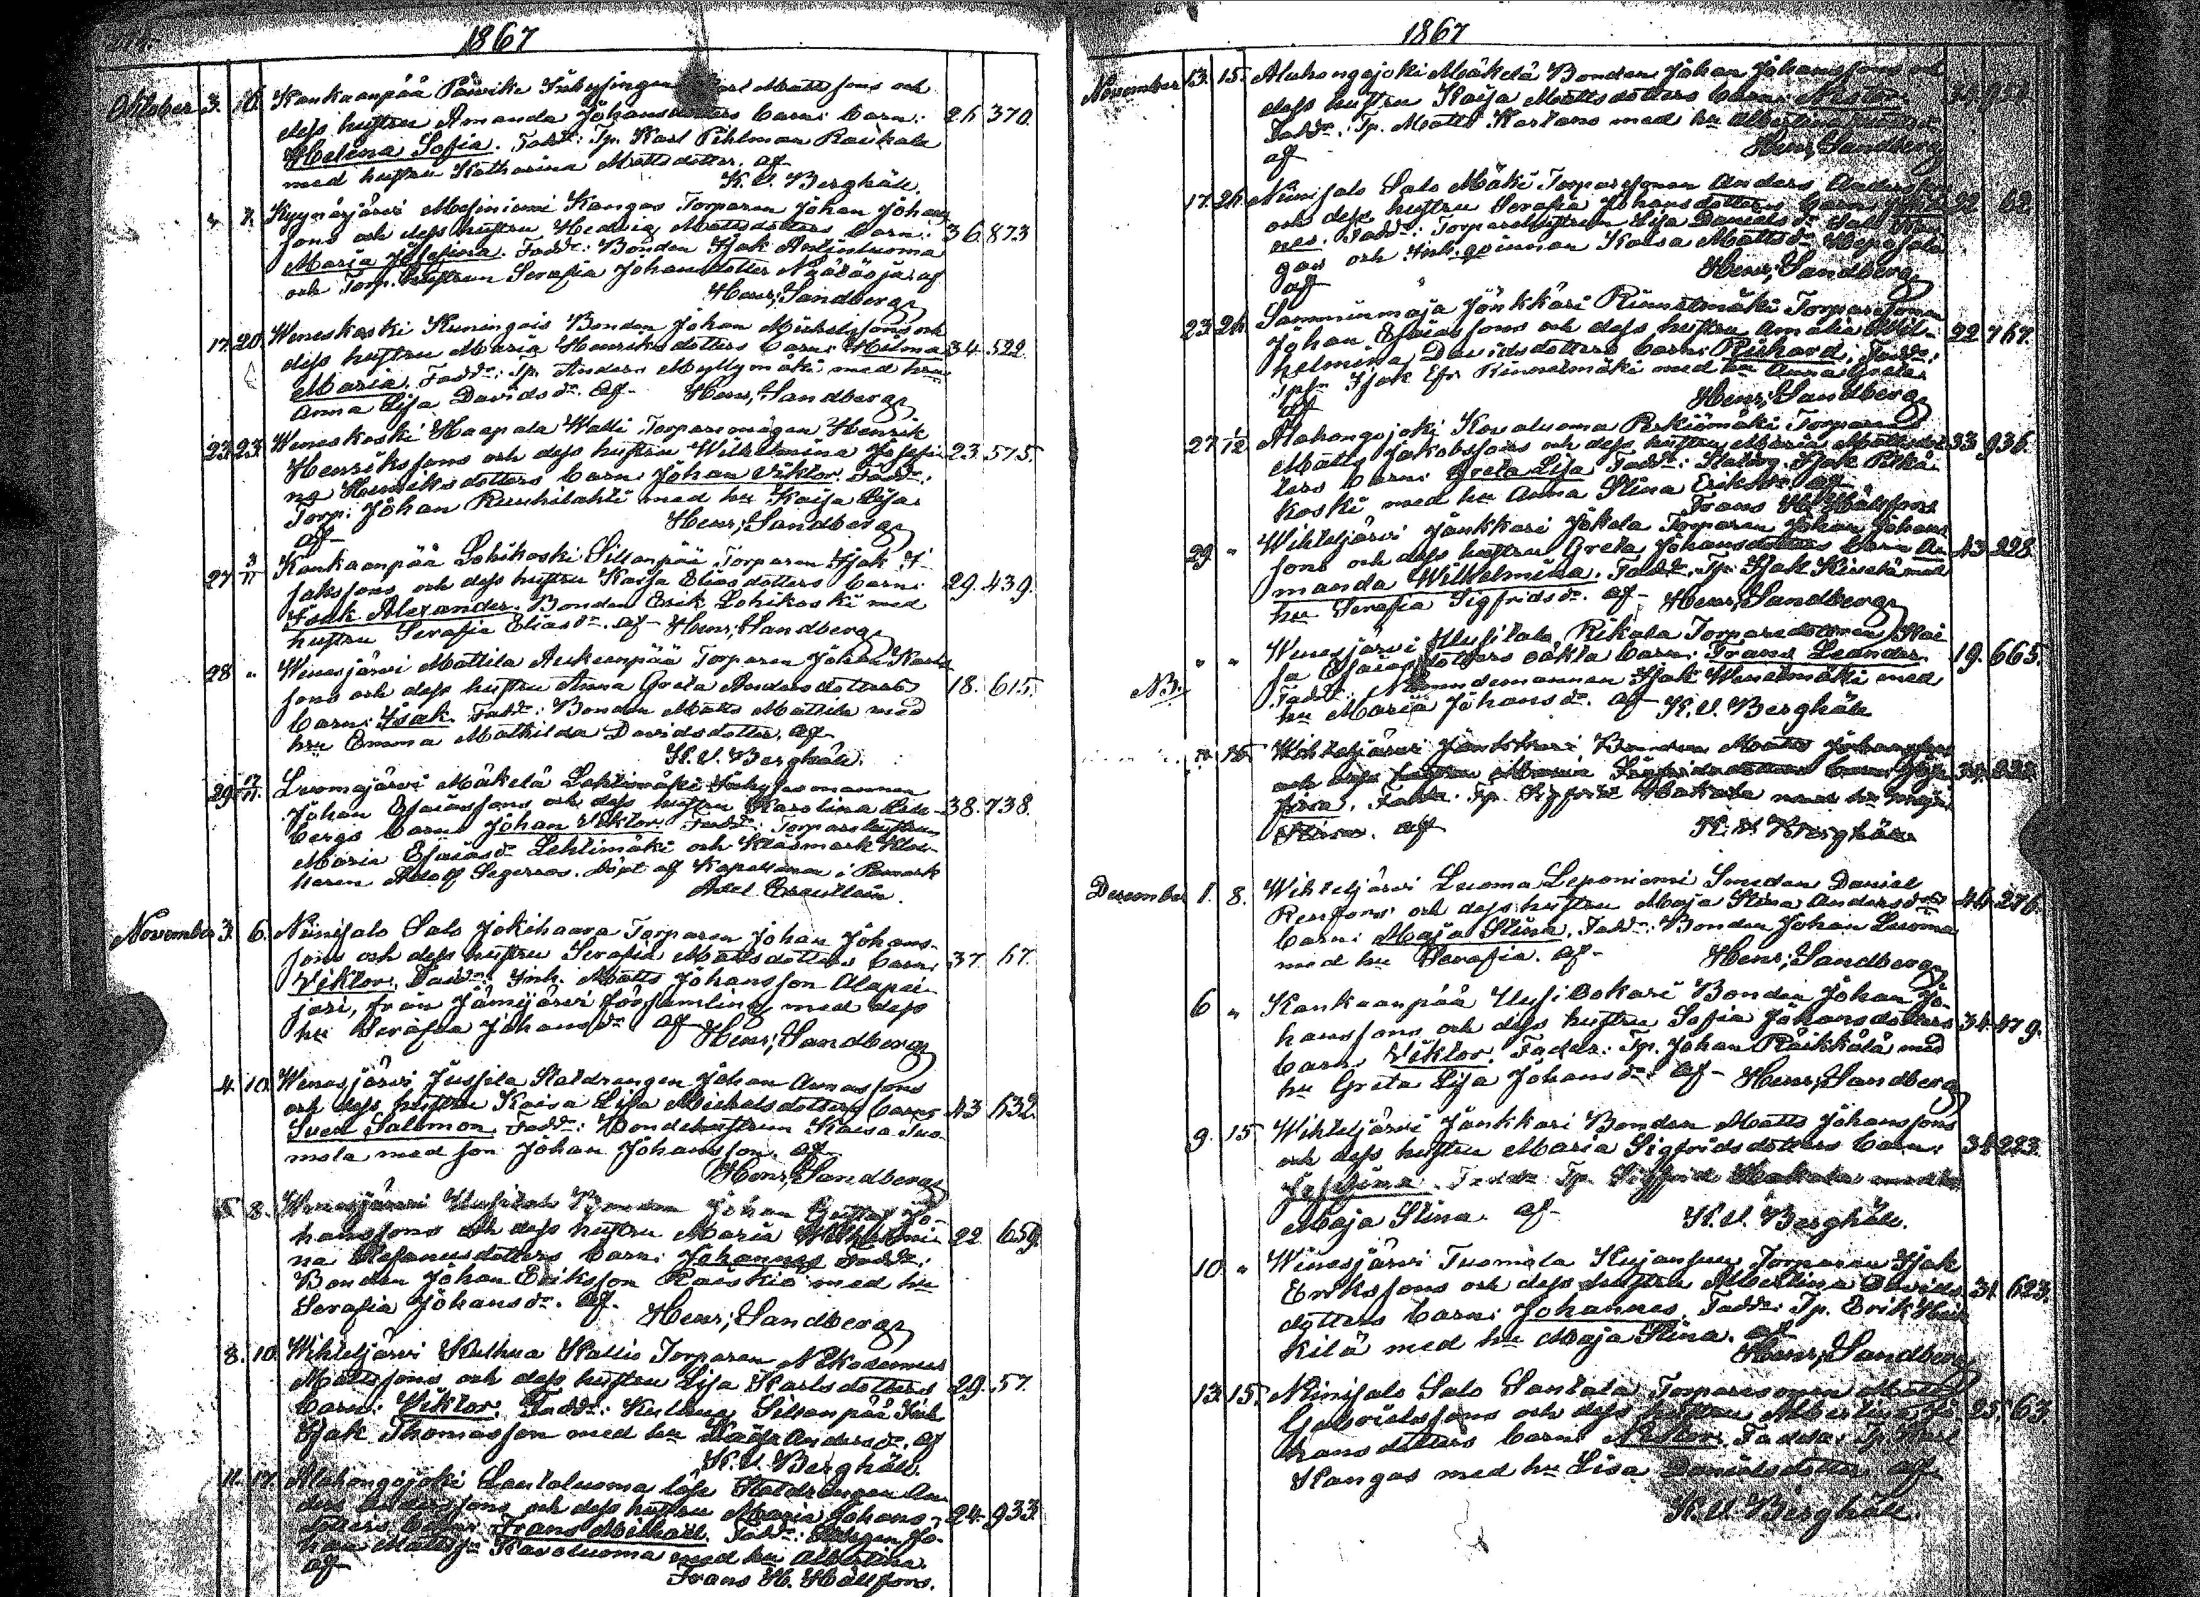 1867
Oktober 3. 16. Kankaanpää Påwike Inhysingen Karl Mattssons och
dess hustru Amanda Johansdotters barn: barn: 26 370.
Helena Sofia. Fadd:r: Tp. Karl Pihlman Raikala
med hustru Katharina Mattsdotter. af
K. V. Berghäll.
Kyynärjärvi Kangas Torparen Johan Johans
sons och dess hustru Hedvig Mattsdotters barn: 36. 873
Maria Josefina. Fadd:r: Bonden Isak
och Torp. hustrun Serafia Johansdotter af
Henr; Sandberg
17. 20. Weneskoski Kuningais Bonden Johan Michelssons och
dess hustru Maria Henriksdotters barn: Hilma 34. 522.
Maria. Fadd:r: Tp. Anders Myllymäki med hru
Anna Lisa Davidsd:r. af Henr; Sandberg
23. 23. Weneskoski Haapala Walli Torparemågen Henrik
Henrikssons och dess hustru Wilhelmina Josefi- 23. 575.
na Henriksdotters barn: Johan Viktor. Fadd:r:
Torp: Johan Ruuhilahti med hu Kaisa Lisa.
af Henr; Sandberg
27 3/11 Kankaanpää Lohikoski Sillanpää Torparen Isak I-
saksons och dess hustru Kaisa Eliasdotters barn: 29. 439.
Isak Alexander. Bonden Erik Lohikoski med
hustru Serafia Eliasd:r. af Henr; Sandberg
28 " Wenesjärvi Mattila Aukeenpää Torparen Johan Karls
sons och dess hustru Anna Greta Andersdotters 18. 615.
barn: Isak. Fadd:r: Bonden Matts Mattila med
hru Emma Mathilda Davidsdotter. af
K. V. Berghäll.
29. 17/11. Luomajärvi Mäkelä Lehtimäki Inhysesmannen
Johan Esaiassons och dess hustru Karolina Lind- 38. 738.
bergs barn: Johan Viktor. Fadd:r: Torparehustrun
Maria Esaiasd:r Lehtimäki och Klåsmark
Adolf Segerros. Döpt af Kapellanen i Påmark
Axel
November 3. 6. Niinisalo Salo Jokihaara Torparen Johan Johans-
sons och dess hustru Serafia Mattsdotters barn: 37. 67.
Viktor. Fadd:r: Inh. Matts Johansson Alapei-
jari, från Jämijärvi församling, med dess
hu Serafia Johansd:r. af Henr; Sandberg
4. 10. Wenesjärvi Jussila Statdrängen Johan
och dess hustru Kaisa Lisa Michelsdotters barn: 43 632.
Sven Salomon. Fadd:r: Bondehustrun Kaisa Tuo-
mola med son Johan Johansson. af
Henr; Sandberg
5. 8. Wenesjärvi Uusitalo Bonden Johan Gustaf Jo-
hanssons och dess hustru Maria Wilhelmi- 22. 659.
na Stefanusdotters barn: Johannes Fadd:r:
Bonden Johan Eriksson Raiskio med hu
Serafia Johansd:r. af.
Henr; Sandberg
8. 10. Wihteljärvi Kulhua Kallio Torparen Nikodemus
Mattssons och dess hustru Lisa Karlsdotters 29. 57.
barn: Viktor. Fadd:r: Kulhua Sillanpää Inh.
Isak Thomasson med hu Andersd:r. af
K. V. Berghäll.
11. 17. Alahongojoki Lautaluoma löse Statdrengen An-
ders Anderssons och dess hustru Maria Johans- 24. 933.
dotters barn: Frans Mikael. Fadd:r: Jo-
han Mattss:n Karoluoma med hu Albertina.
af Frans H. Hällfors.
1867
November 13. 15. Alahongojoki Mäkelä Bonden Johan Johanssons och
dess hustru Kaisa Mattsdotters barn: Nestor.
Fadd:r: Tp. Matts Kortans med hu Albertina
af Henr; Sandberg
17. 24. Niinisalo Salo Mäki Torparesonen Anders Anderssons
och dess hustru Serafia Johansdotters barn: 22 62.
Fadd:r: Torparehustrun Lisa Danielsd:r Salo Kan-
gas och Inh. qvinnan Kaisa Mattsd:r
af Henr; Sandberg
23. 24. Sammiunmaja Jönkkäri Rinnetmäki Torparesonen
Johan Esaiassons och dess hustru Amalia Wil- 22 767.
helmina Davidsdotters barn: Rikhard. Fadd:r:
Isak Rinnetmäki med hu Anna Greta.
af Henr; Sandberg
27 1/12 Alahongojoki Kovaluoma Perkiömäki Torparens
Matts Jakobssons och dess hustru Maria Mattsdot- 33 936.
ters barn: Greta Lisa Fadd:r: Isak Pitkä-
koski med hu Anna Stina Eriksd:r. af
Frans H. Hällfors
29. " Wihteljärvi Jänkkäri Jokela Torparen Johan Johans
sons och dess hustru Greta Johansdotters barn A- 43. 228.
manda Wilhelmina. Fadd:r. Tp. Isak med
hu Serafia Sigfridsd:r. af Henr; Sandberg
" " Wenesjärvi Uusitalo Rikala Torparedottren Kai-
sa Esaiasdotters oäkta barn: Frans Leander. 19. 665.
N3. Fadd:r: Nämndemannen Isak Wenesmäki med
hu Maria Johansd:r. af K. V. Berghäll
Wihteljärvi Jänkkäri Bonden Matts Johanssons
och dess hustru Maria Sigfridsdotters barn: 34.
Fadd:r. Tp. Sigfrid Hakala med hu Maja
Stina. af K. V. Berghäll
December 1. 8. Wihteljärvi Luoma Leponiemi Smeden Daniel
och dess hustru Maja Stina Andersd:rs 44. 276.
barn: Maja Stina. Fadd:r: Bonden Johan Luoma
med hu Serafia. af Henr; Sandberg
6 " Kankaanpää Uusi Bokari Bonden Johan Jo-
hanssons och dess hustru Sofia Johansdotters 34. 479.
barn: Viktor. Faddr: Tp. Johan Räikkälä med
hu Greta Lisa Johansd:r. af Henr; Sandberg
9. 15. Wihteljärvi Jänkkäri Bonden Matts Johanssons
och dess hustru Maria Sigfridsdotters barn: 34 223.
Josefina. Fadd:r Tp. Sigfrid Hakala med hu
Maja Stina. af K. V. Berghäll.
10 " Wenesjärvi Tuomola Kujanpu Torparen Isak
Erikssons och dess hustru Albertina Davids- 31. 623.
dotters barn: Johannes. Fadd:r: Tp. Erik Heik-
kilä med hu Maja Stina. af
Henr; Sandberg
13. 15. Niinisalo Salo Santala Torparesonen Matts
Gabrielssons och dess hustru Albertina Jo- 25. 63.
hansdotters barn: Nestor. Faddr: Tp. Karl
Kangas med hu Lisa Danielsdotter. af
K. V. Berghäll.